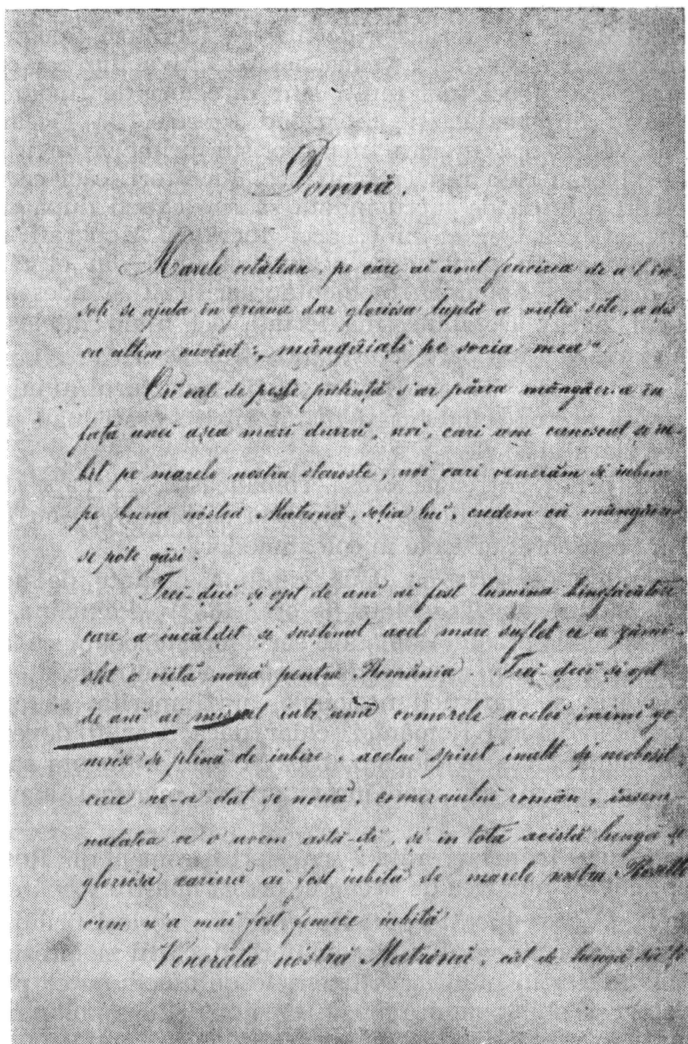 Domnă.
Marele cetatean, pe care ai avut fericirea de a 'l în-
soți și ajuta în griaua dar gloriosa luptă a vieței séle, a dis
ca ultim cuvînt: „mângâiați pe socia mea"
Orĭ cat de peste putință s'ar părea mângâerea în
fața unei așea mari durerĭ, noi, cari am cunoscut și iu-
bit pe marele nostru staroste, noi cari venerăm și iubim
pe buna nóstră Matrónă, soția luĭ, credem că mângâerea
se póte găsi.
Treĭ-decĭ și opt de anĭ aĭ fost lumina bingfăcătóre
care a încăldit și sustinut acel mare suflet ce a zămi-
slit o viétă nouă pentru România. Treĭ-decĭ și opt
de anĭ aĭ comorele aceleĭ inimĭ ge-
neróse și plină de iubire, aceluĭ spirit inalt și neobosit
care ne-a dat și nouă, comerculuĭ român, însem-
nătatea ce o avem astă-dĭ, și in tótă acéstă lungă și
gloriósă carieră aĭ fost iubită de marele nostru Rosetti
cum n'a mai fost femeee iubită
Venerata nóstră Matrónă, cât de lungă să fi